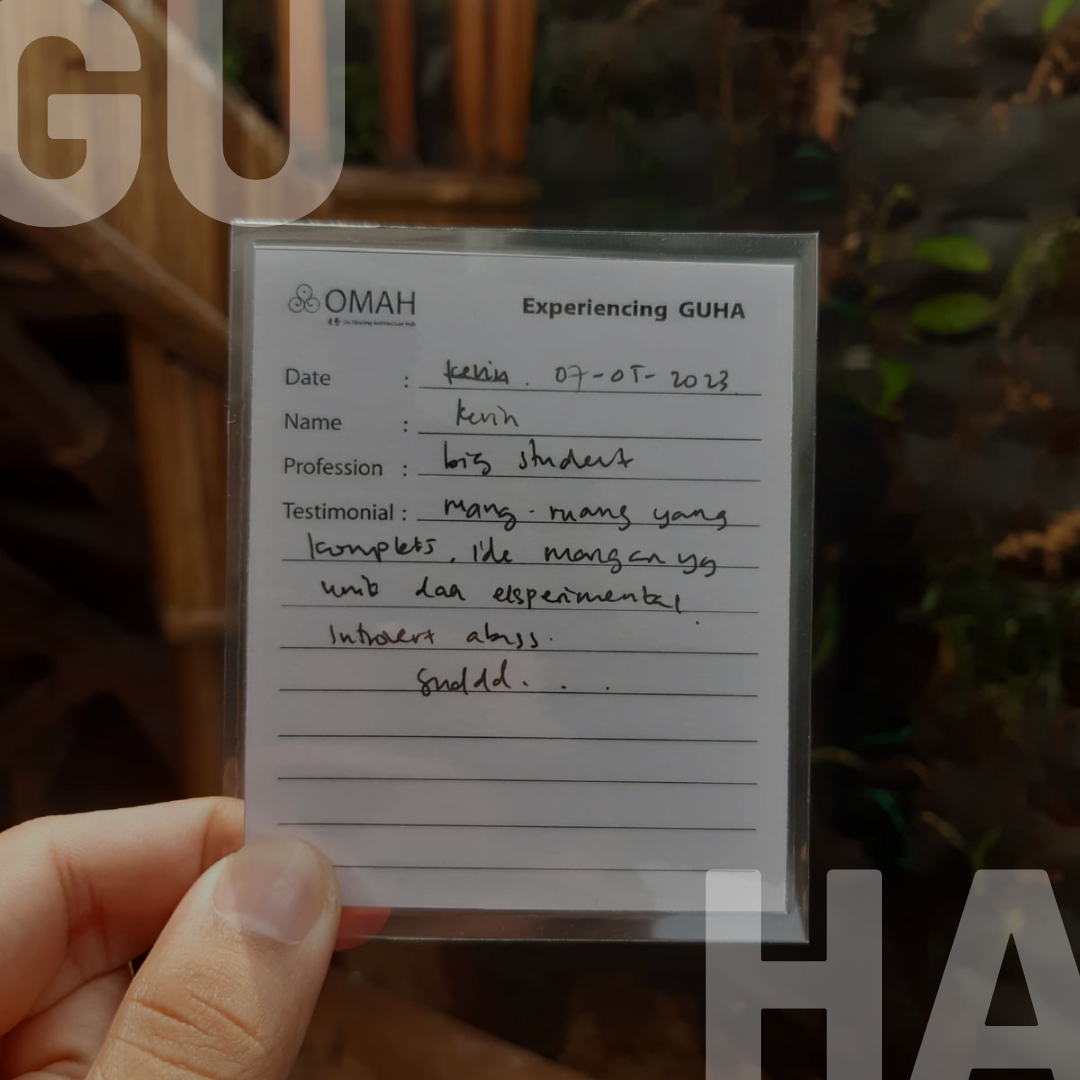 GU
OMAH
Experiencing GUHA
Date : kevin. 07-05-2023
Name : kevin
Profession : big student
Testimonial : ruang-ruang yang
kompleks, ide ruangan yg
unik dan eksperimental
Introvert abyss.
Suddd. . .
HA